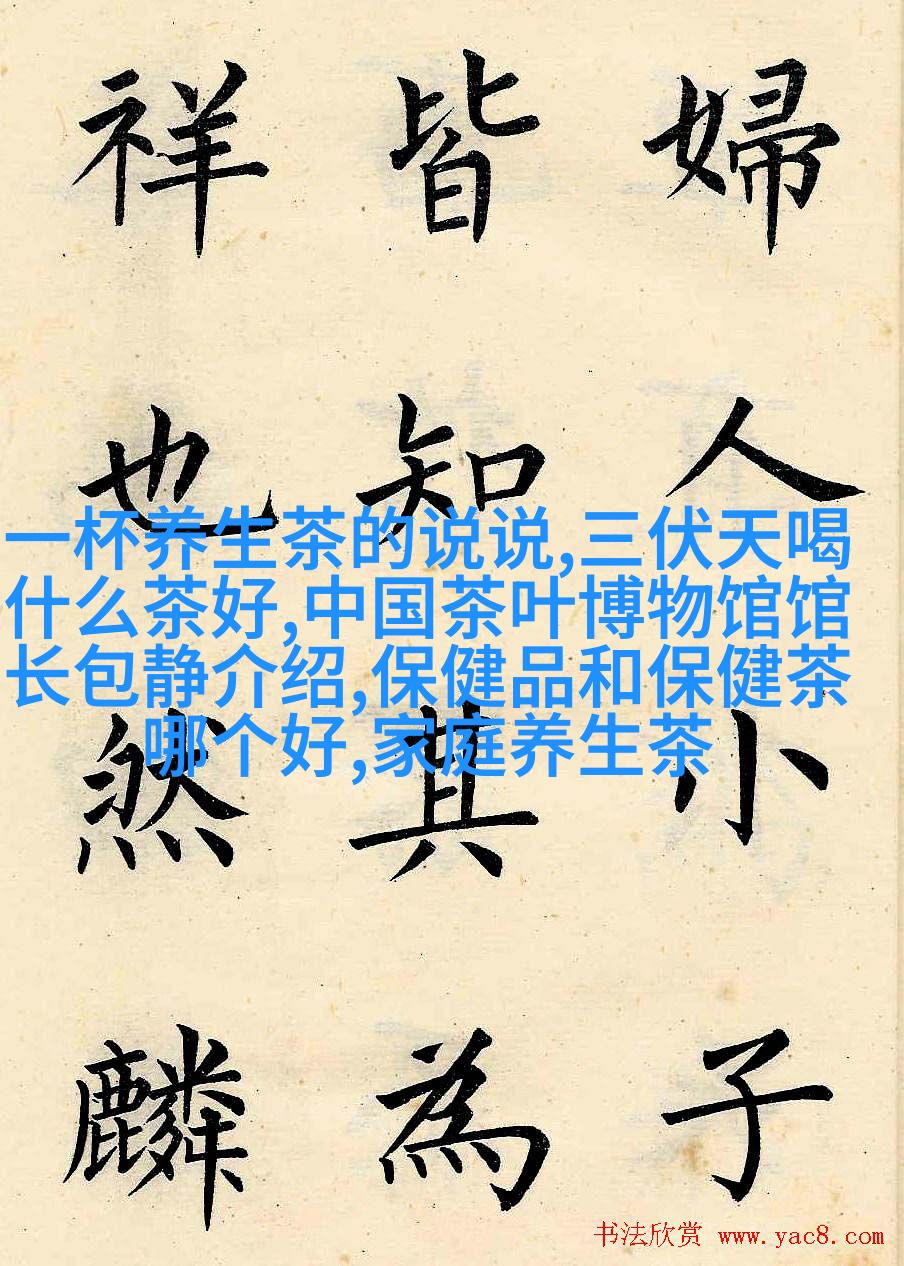 婦人小子
皆知其為
祥也然麟
一杯养生茶的说说,三伏天喝
什么茶好,中国茶叶博物馆馆
长包静介绍,保健品和保健茶
哪个好,家庭养生茶
书法欣赏 www.yac8.com